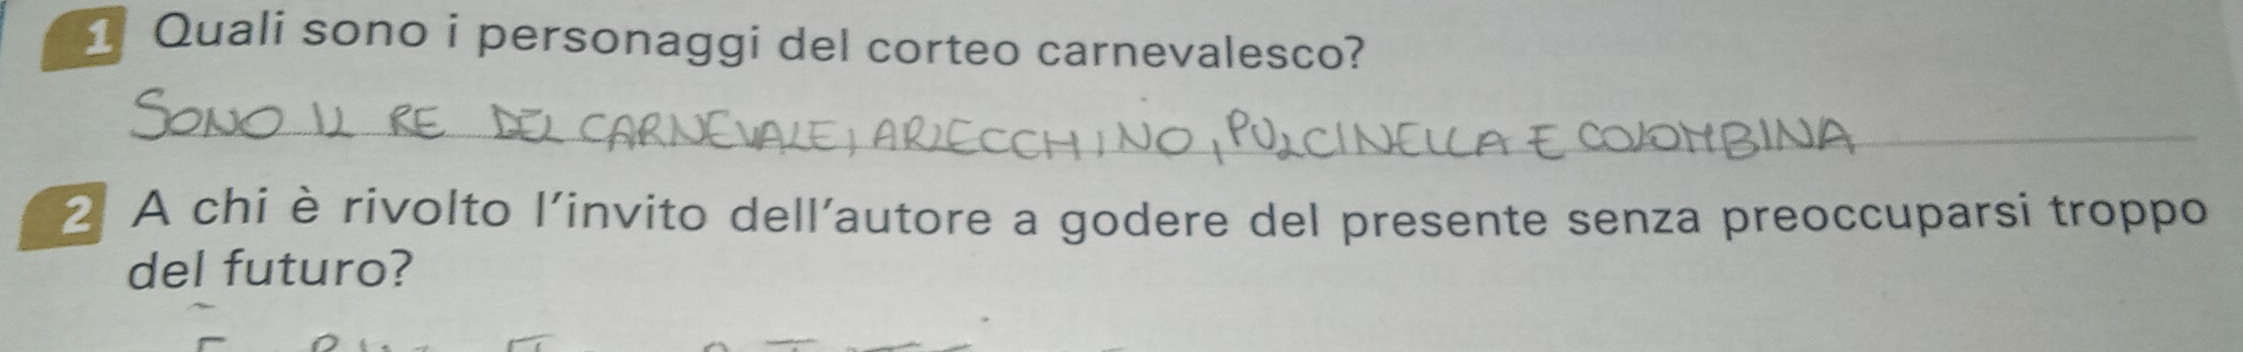 1 Quali sono i personaggi del corteo carnevalesco?
SONO IL RE DEL CARNEVALE, ARLECCHINO, PULCINELLA E COLOMBINA
2 A chi è rivolto l'invito dell'autore a godere del presente senza preoccuparsi troppo
del futuro?